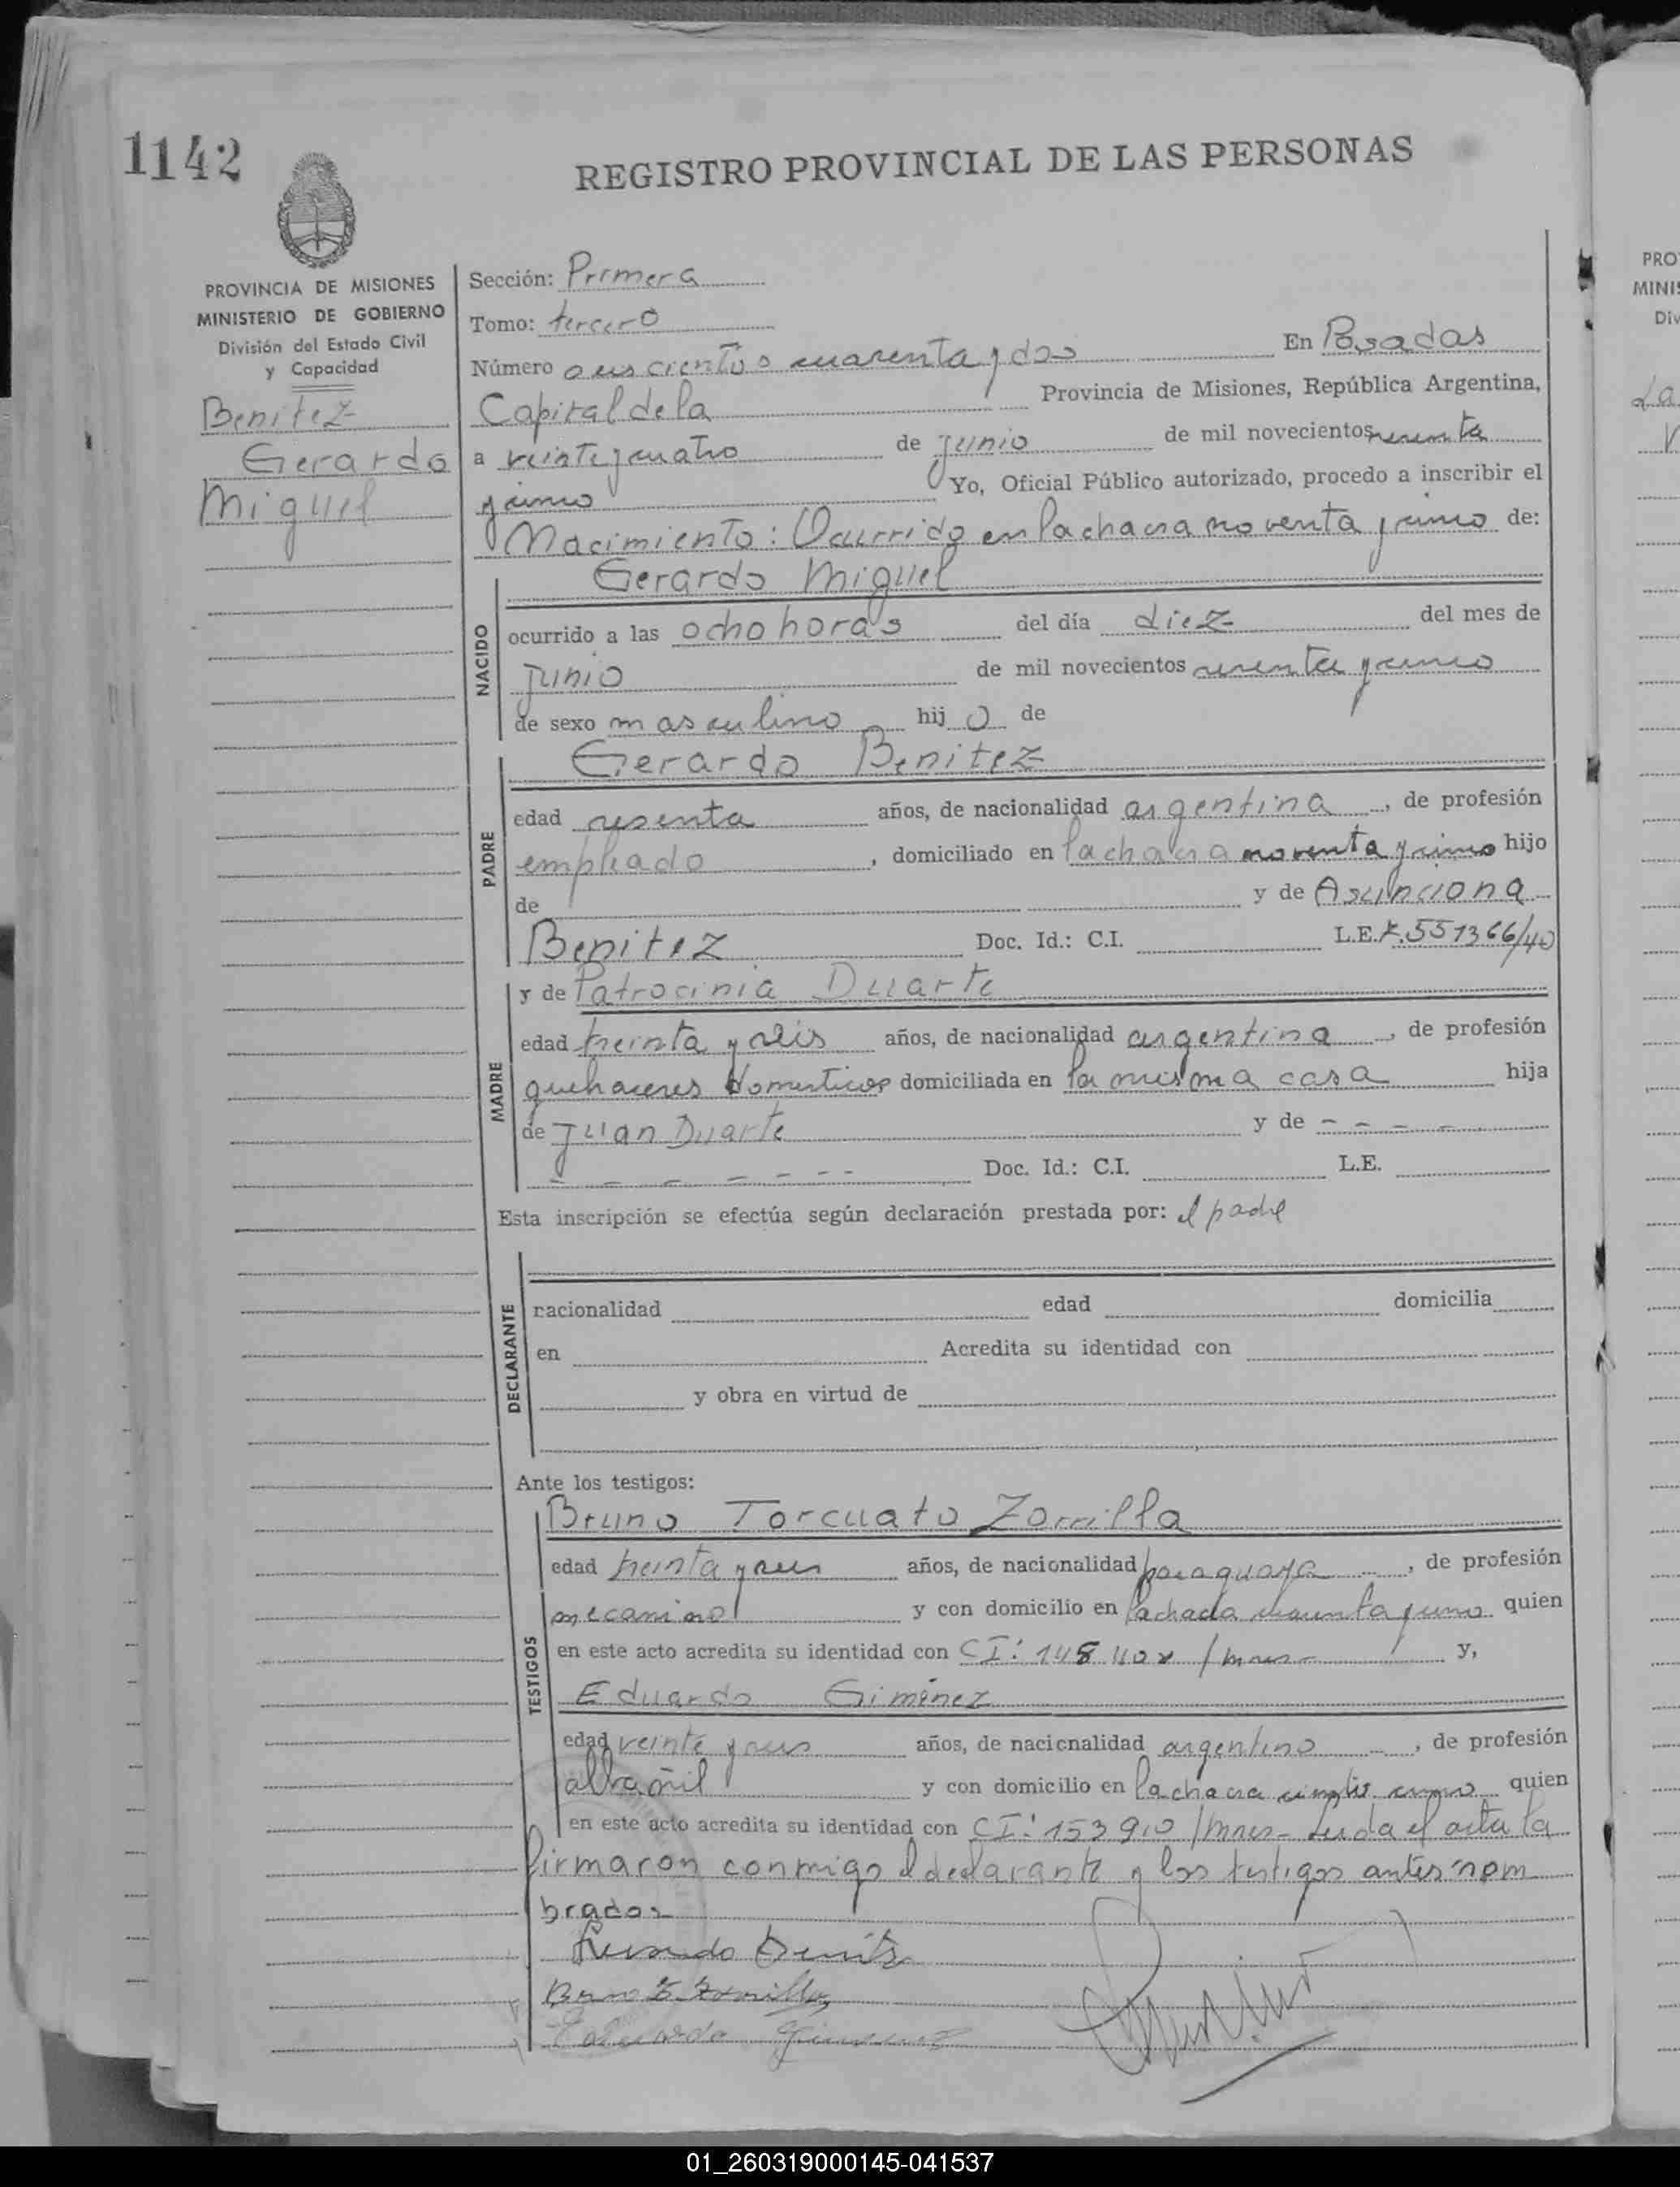 1142
REGISTRO PROVINCIAL DE LAS PERSONAS
PROVINCIA DE MISIONES
MINISTERIO DE GOBIERNO
División del Estado Civil
y Capacidad
Benitez
Gerardo
Miguel
Sección: Primera
Tomo: tercero
Número cuarenta y dos En Posadas
Capital de la Provincia de Misiones, República Argentina,
a veinte y cuatro de junio de mil novecientos
Yo, Oficial Público autorizado, procedo a inscribir el
Nacimiento: Ocurrido en la chacra noventa y de:
NACIDO
Gerardo Miguel
ocurrido a las ocho horas del día diez del mes de
junio de mil novecientos
de sexo masculino hijo de
PADRE
Gerardo Benitez
edad años, de nacionalidad argentina, de profesión
empleado, domiciliado en la chacra noventa y hijo
de y de Asunciona
Benitez Doc. Id.: C.I. L.E. 551366/40
MADRE
y de Patrocinia Duarte
edad treinta y seis años, de nacionalidad argentina, de profesión
quehaceres domesticos domiciliada en la misma casa hija
de Juan Duarte y de - - - -
- - - - - - Doc. Id.: C.I. L.E.
Esta inscripción se efectúa según declaración prestada por: el padre
DECLARANTE
nacionalidad edad domicilia
en Acredita su identidad con
y obra en virtud de
Ante los testigos:
TESTIGOS
Bruno Torcuato Zorrilla
edad treinta y años, de nacionalidad paraguaya, de profesión
mecanico y con domicilio en quien
en este acto acredita su identidad con CI: y,
Eduardo Gimenez
edad veinte y años, de nacionalidad argentino, de profesión
albañil y con domicilio en la chacra quien
en este acto acredita su identidad con CI: 153910/mnes- Leida el acta la
firmaron conmigo el declarante y los testigos antes nom
brados
Gerardo Benitez
Bruno T. Zorrilla
Eduardo Gimenez
PRO
MINIS
Div
La
01_260319000145-041537